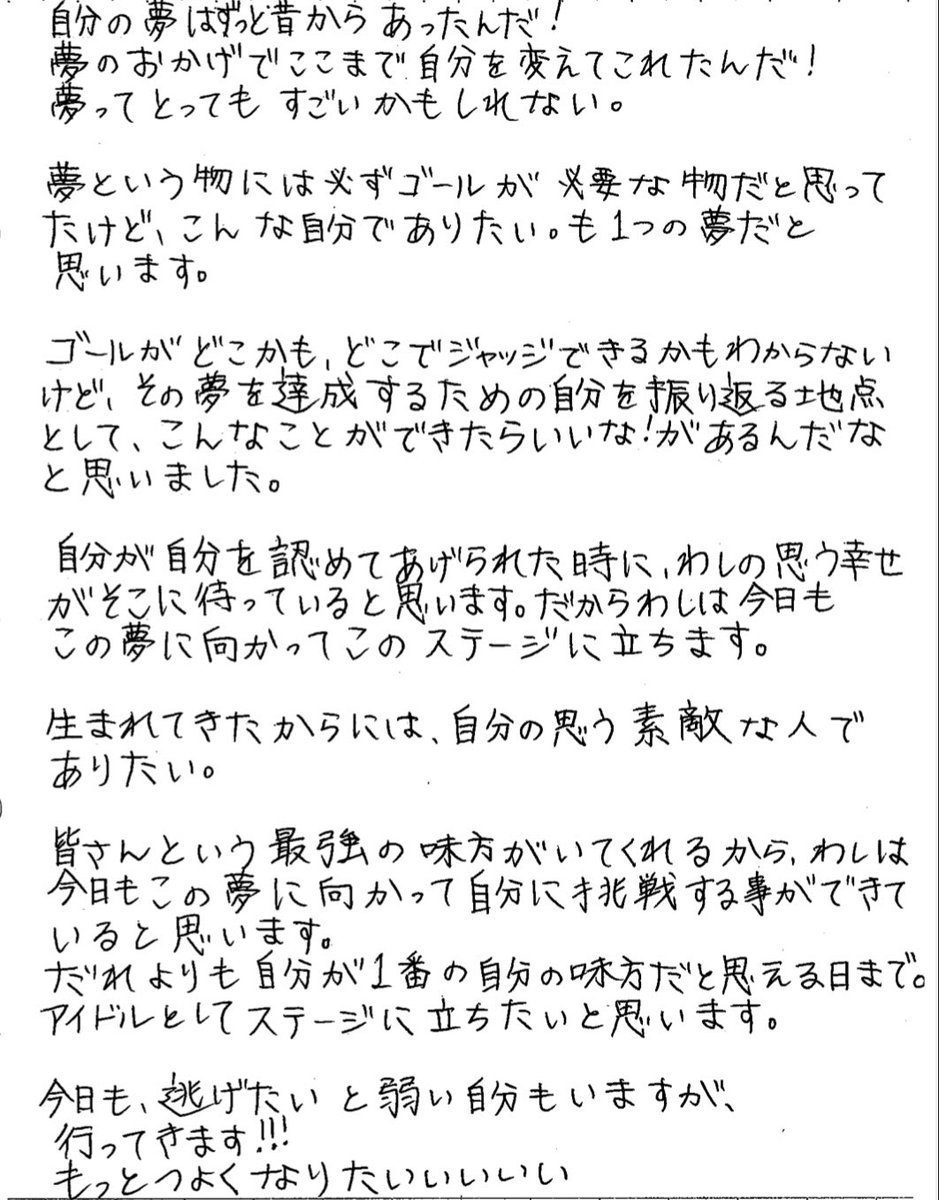 自分の夢はずっと昔からあったんだ!
夢のおかげでここまで自分を変えてこれたんだ!
夢ってとってもすごいかもしれない。
夢という物には必ずゴールが必要な物だと思って
たけど、こんな自分でありたい。も1つの夢だと
思います。
ゴールがどこかも、どこでジャッジできるかもわからない
けど、その夢を達成するための自分を振り返る地点
として、こんなことができたらいいな!があるんだな
と思いました。
自分が自分を認めてあげられた時に、わしの思う幸せ
がそこに待っていると思います。だからわしは今日も
この夢に向かってこのステージに立ちます。
生まれてきたからには、自分の思う素敵な人で
ありたい。
皆さんという最強の味方がいてくれるから、わしは
今日もこの夢に向かって自分に挑戦する事ができて
いると思います。
だれよりも自分が1番の自分の味方だと思える日まで。
アイドルとしてステージに立ちたいと思います。
今日も、逃げたいと弱い自分もいますが、
行ってきます!!!
もっとつよくなりたいいいいい